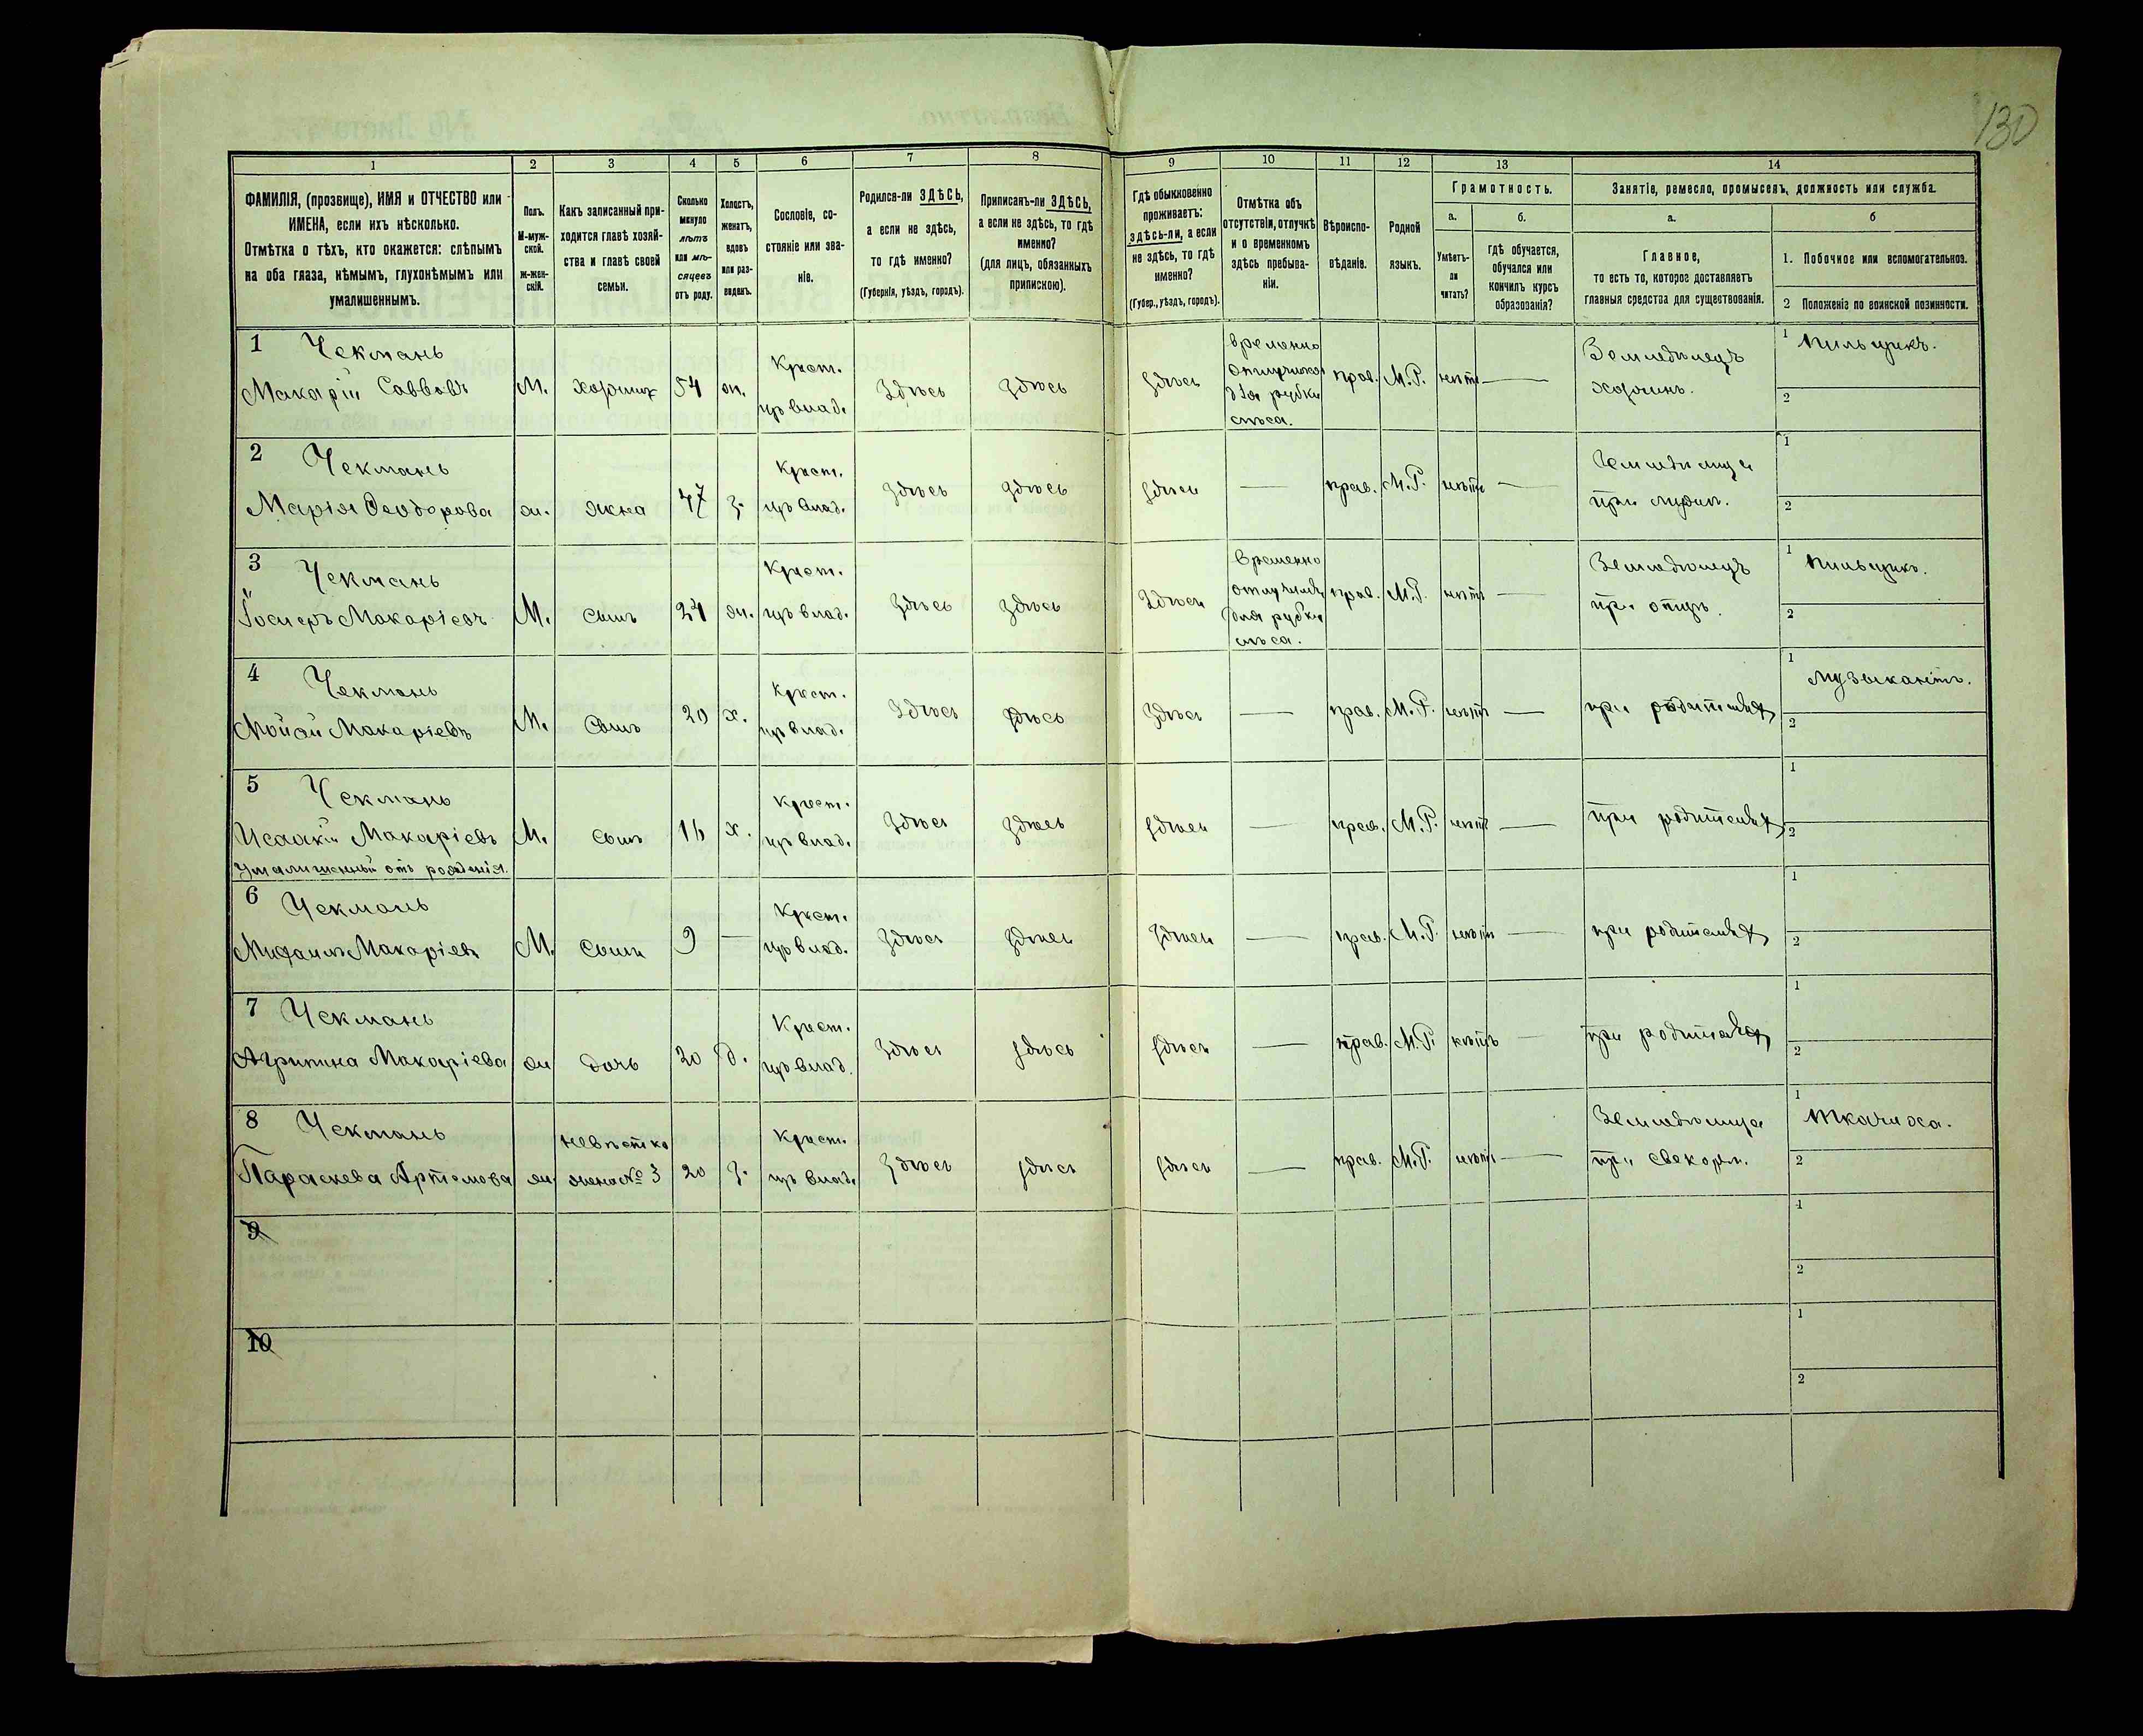 130
1 2 3 4 5 6 7 8 9 10 11 12 13 14
ФАМИЛІЯ, (прозвище), ИМЯ и ОТЧЕСТВО или
ИМЕНА, если ихъ нѣсколько.
Отмѣтка о тѣхъ, кто окажется: слѣпымъ
на оба глаза, нѣмымъ, глухонѣмымъ или
умалишеннымъ.
Полъ.
М-муж-
ской.
Ж-жен-
скій.
Какъ записанный при-
ходится главѣ хозяй-
ства и главѣ своей
семьи.
Сколько
минуло
лѣтъ
или мѣ-
сяцевъ
отъ роду.
Холостъ,
женатъ,
вдовъ
или раз-
веденъ.
Сословіе, со-
стояніе или зва-
ніе.
Родился-ли ЗДѢСЬ,
а если не здѣсь,
то гдѣ именно?
(Губернія, уѣздъ, городъ).
Приписанъ-ли ЗДѢСЬ,
а если не здѣсь, то гдѣ
именно?
(для лицъ, обязанныхъ
припискою).
Гдѣ обыкновенно
проживаетъ:
здѣсь-ли, а если
не здѣсь, то гдѣ
именно?
(Губер., уѣздъ, городъ).
Отмѣтка объ
отсутствіи, отлучкѣ
и о временномъ
здѣсь пребыва-
ніи.
Вѣроиспо-
вѣданіе.
Родной
языкъ.
Грамотность.
а.
Умѣетъ-
ли
читать?
б.
Гдѣ обучается,
обучался или
кончилъ курсъ
образованія?
Занятіе, ремесло, промыселъ, должность или служба.
а.
Главное,
то есть то, которое доставляетъ
главныя средства для существованія.
б
1. Побочное или вспомогательное.
2 Положеніе по воинской повинности.
1 Чекмань
Макарій Саввовъ
М. хозяинъ 54 ж.
Крест.
изъ влад.
Здѣсь Здѣсь Здѣсь
временно
отлучился
для рубки
лѣса.
прав. М.Р. нѣтъ —
Земледѣлецъ
хозяинъ.
1 Пильщикъ.
2
2 Чекмань
Марія Феодорова
ж. жена 47 з.
Крест.
изъ влад.
Здѣсь Здѣсь Здѣсь — прав. М.Р. нѣтъ —
Земледѣлица
при мужѣ.
1
2
3 Чекмань
Іосифъ Макаріевъ
М. сынъ 24 ж.
Крест.
изъ влад.
Здѣсь Здѣсь Здѣсь
Временно
отлучился
для рубки
лѣса.
прав. М.Р. нѣтъ —
Земледѣлецъ
при отцѣ.
1 Пильщикъ.
2
4 Чекмань
Мойсей Макаріевъ
М. Сынъ 20 х.
Крест.
изъ влад.
Здѣсь Здѣсь Здѣсь — прав. М.Р. нѣтъ —
при родителяхъ
1 Музыкантъ.
2
5 Чекмань
Исаакій Макаріевъ
Умалишенный отъ рожденія.
М. сынъ 16 х.
Крест.
изъ влад.
Здѣсь Здѣсь Здѣсь — прав. М.Р. нѣтъ —
при родителяхъ
1
2
6 Чекмань
Михаилъ Макаріевъ
М. Сынъ 9 —
Крест.
изъ влад.
Здѣсь Здѣсь Здѣсь — прав. М.Р. нѣтъ —
при родителяхъ
1
2
7 Чекмань
Агрипина Макаріева
ж дочь 20 д.
Крест.
изъ влад.
Здѣсь Здѣсь Здѣсь — прав. М.Р. нѣтъ —
при родителяхъ
1
2
8 Чекмань
Параскева Артемова
ж
невѣстка
жена № 3
20 з.
Крест.
изъ влад.
Здѣсь Здѣсь Здѣсь — прав. М.Р. нѣтъ —
Земледѣлица
при свекорѣ.
1 Ткачиха.
2
9
1
2
10
1
2